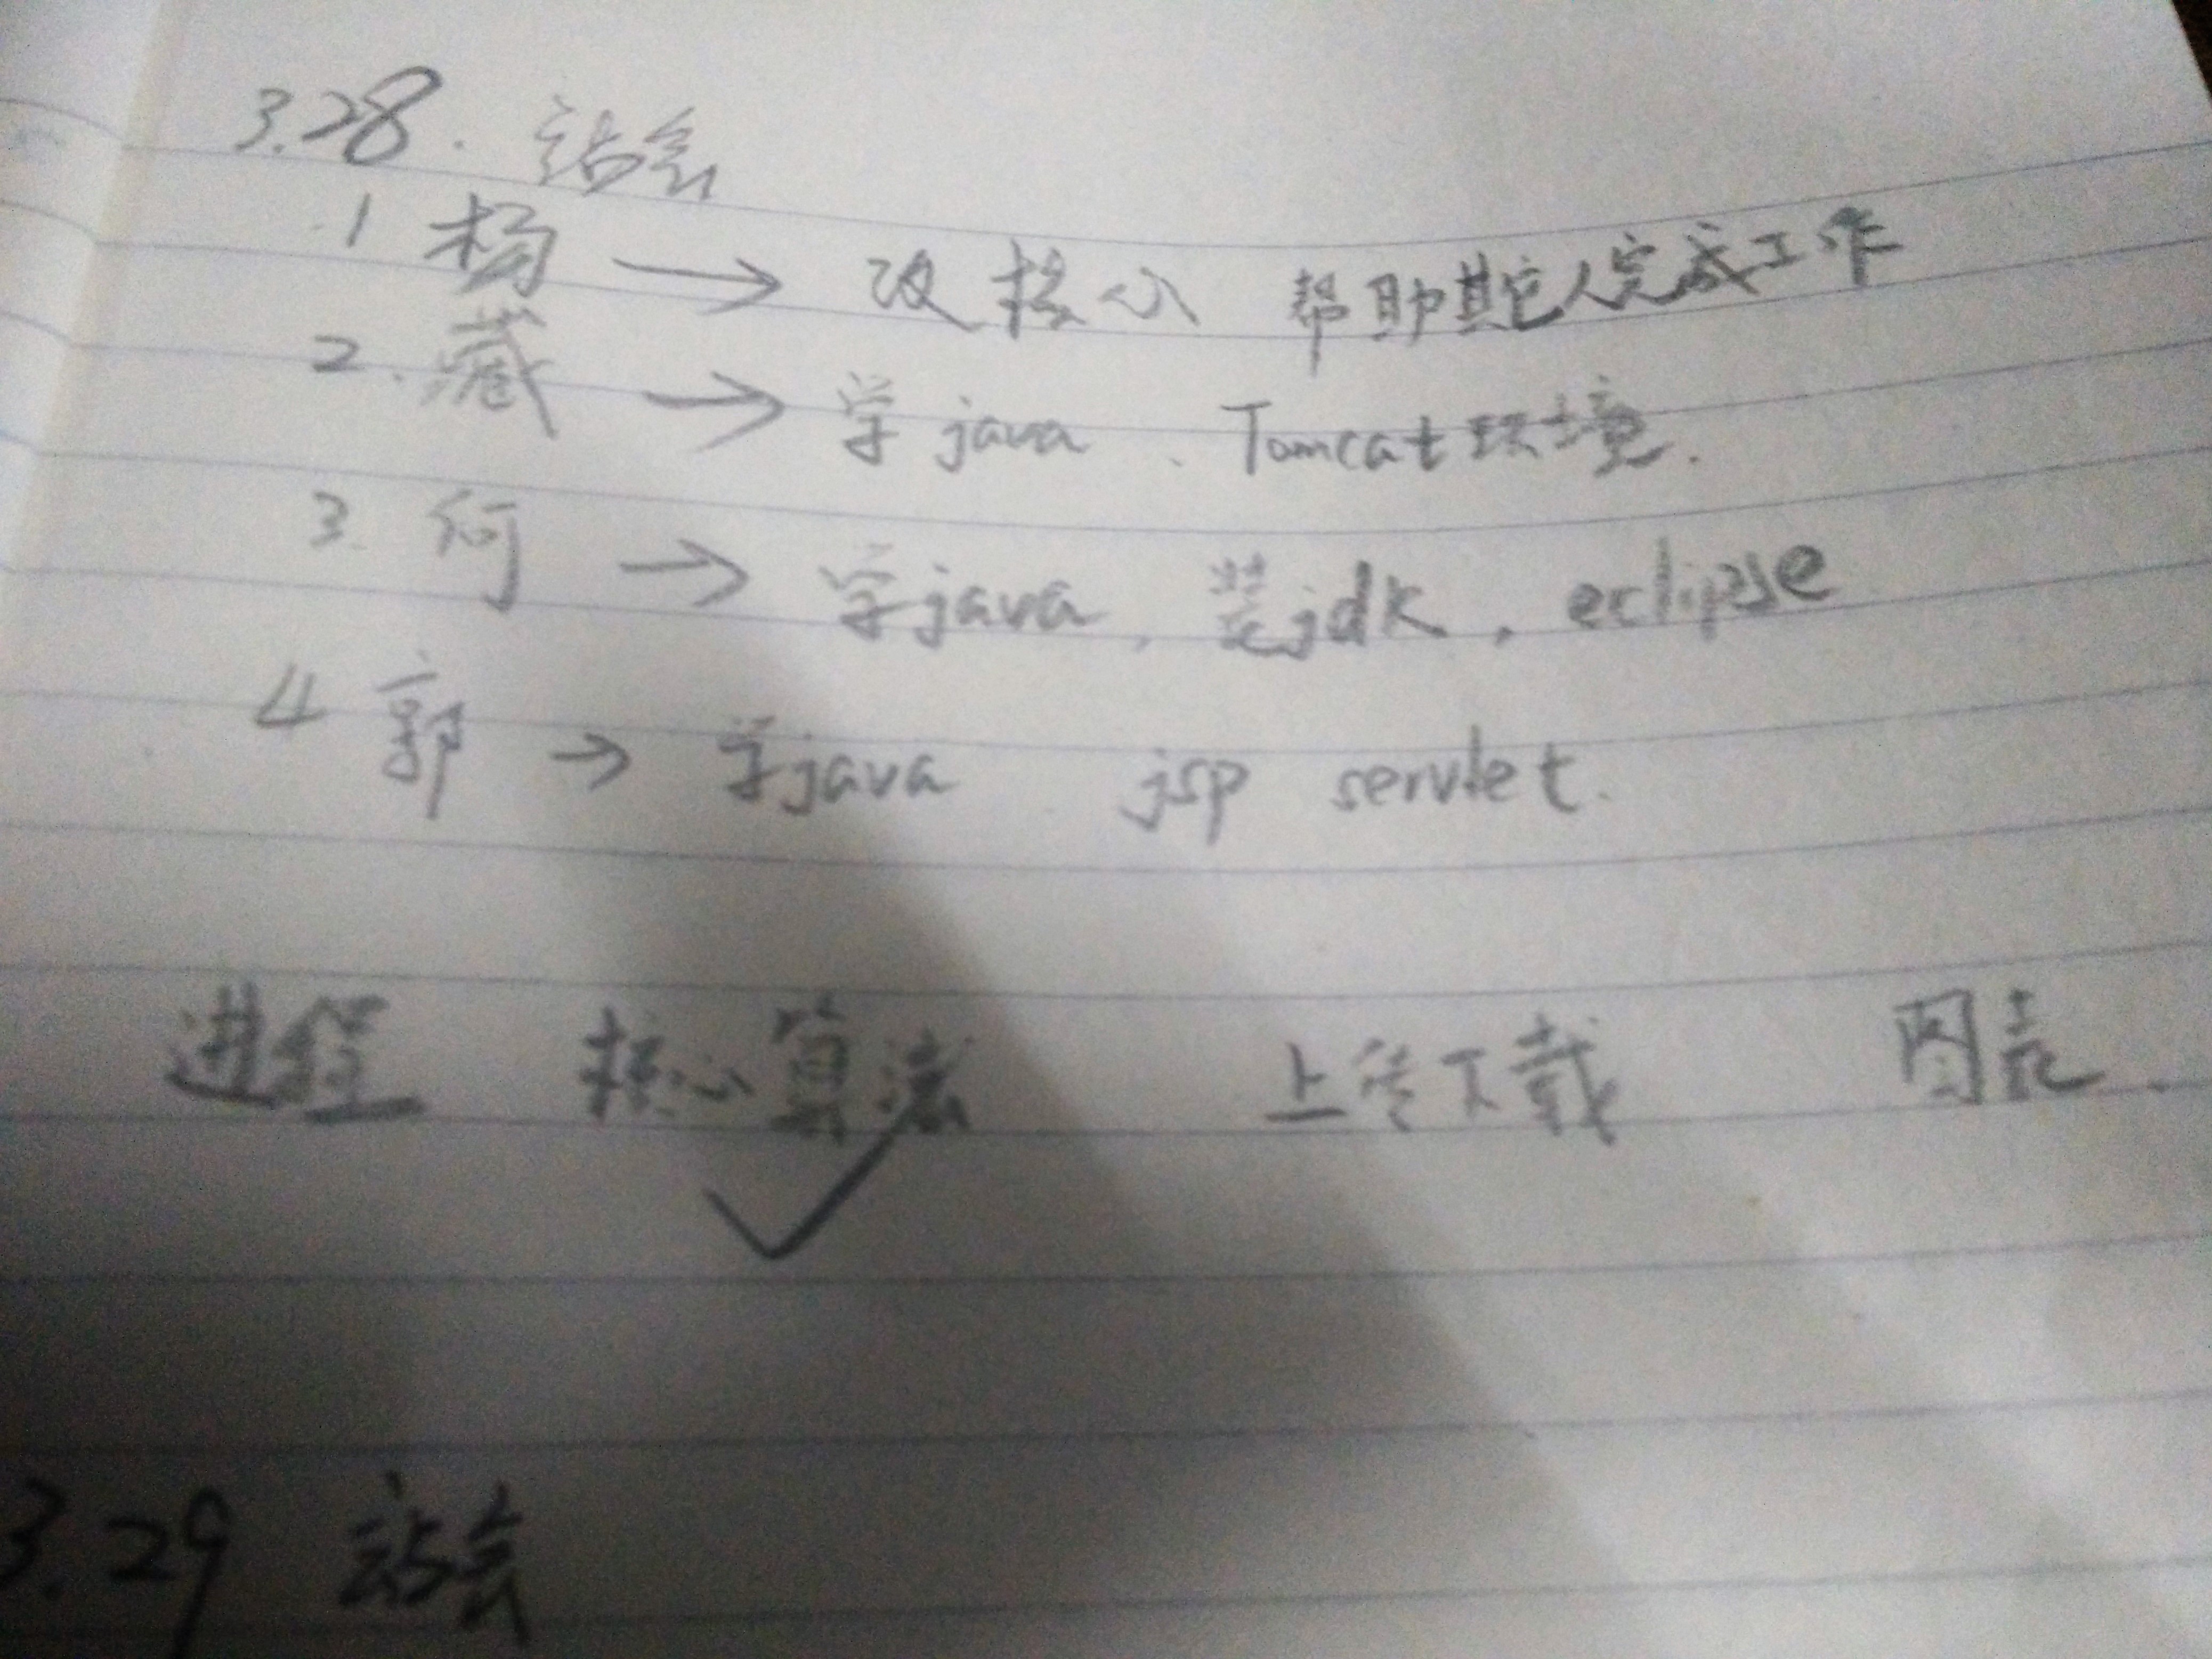 3.28. 站会
1 杨 → 改核心 帮助其它人完成工作
2. 藏 → 学java、Tomcat环境.
3. 何 → 学java, 装jdk, eclipse
4 郭 → 学java jsp servlet.
进程 核心算法 上传下载 图表.
✓
3.29 站会